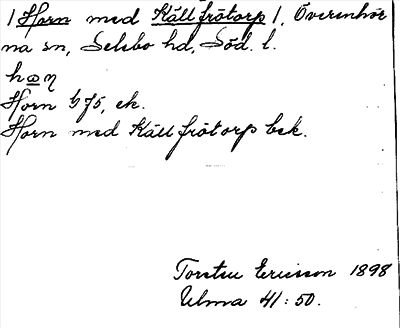 1 Horn med Källfrötorp 1, Överenhör
na sn, Selebo hd, Söd. l.
Horn 575, ek.
Horn med Källfrötorp bek.
Torsten Ericsson 1898
Ulma 41:50.